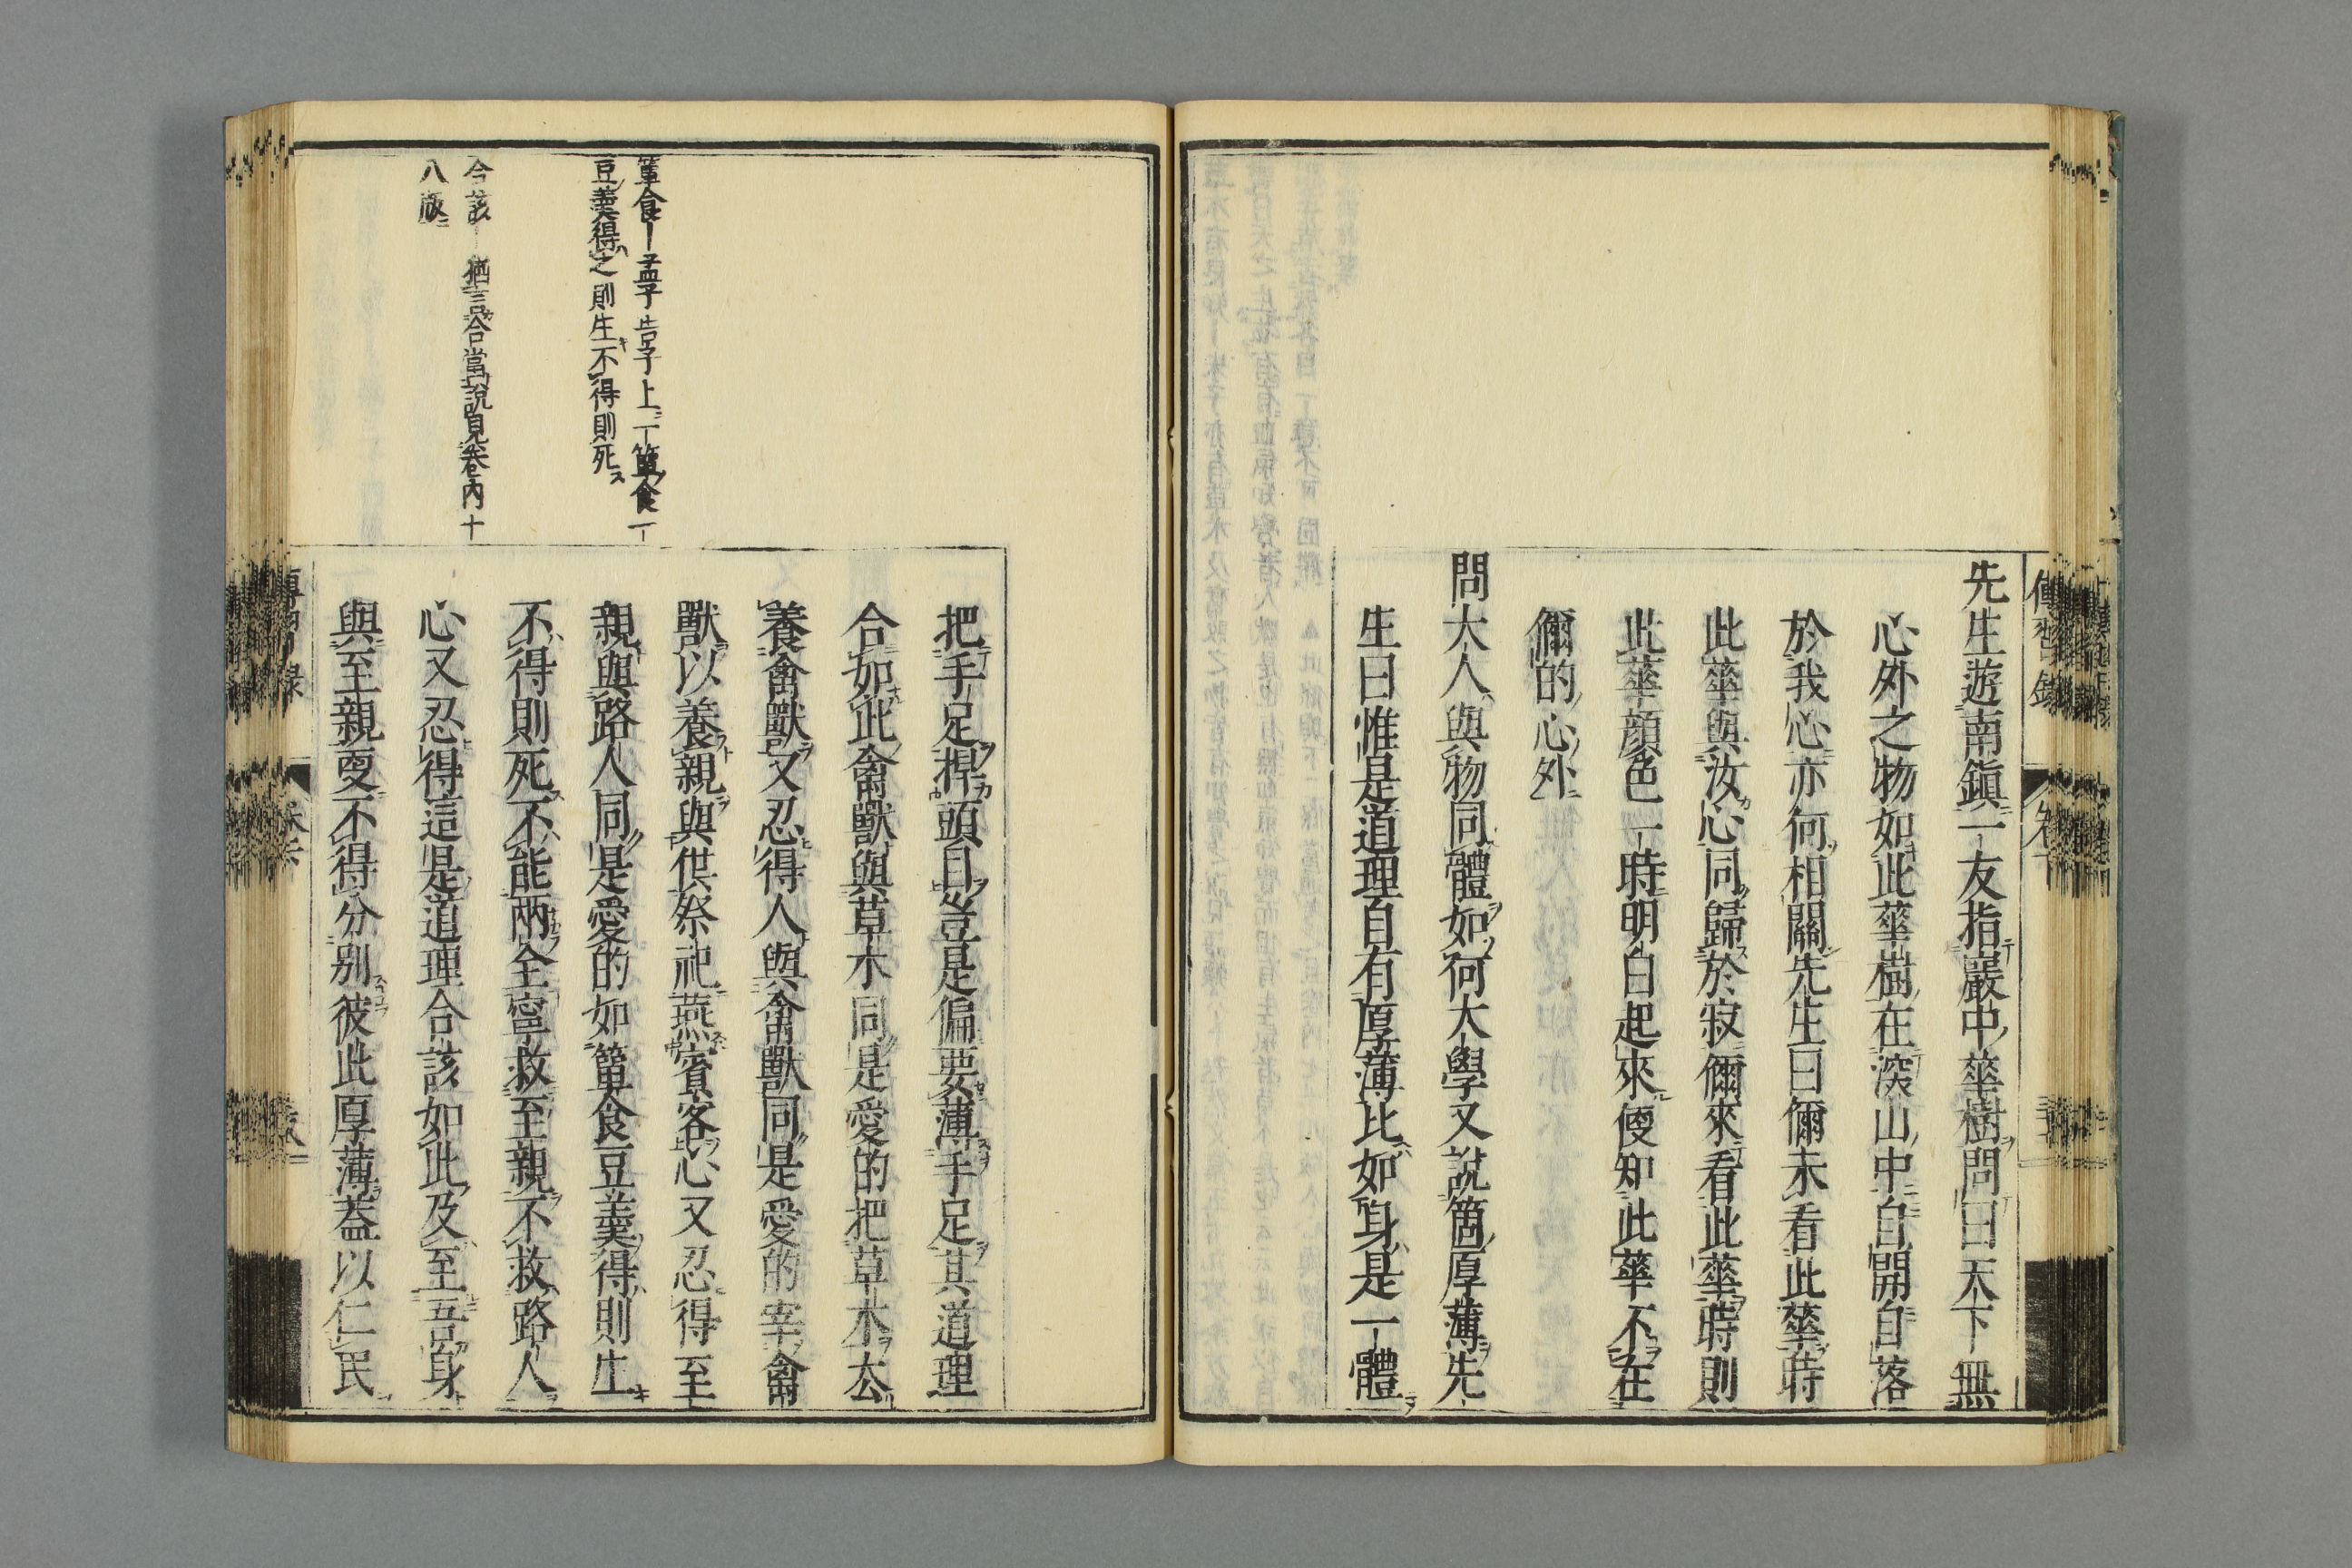 先生遊南鎮一友指巖中華樹問曰天下無
心外之物如此華樹在深山中自開自落
於我心亦何相關先生曰爾未看此華時
此華與汝心同歸於寂爾來看此華時則
此華顔色一時明白起來便知此華不在
爾的心外
問大人與物同體如何大學又說箇厚薄先
生曰惟是道理自有厚薄比如身是一體
把手足捍頭目豈是偏要薄手足其道理
合如此禽獸與草木同是愛的把草木去
養禽獸又忍得人與禽獸同是愛的宰禽
獸以養親與供祭祀燕賓客心又忍得至
親與路人同是愛的如簞食豆羹得則生
不得則死不能兩全寧救至親不救路人
心又忍得這是道理合該如此及至吾身
與至親更不得分别彼此厚薄蓋以仁民
簞食｜孟子告子上一簞食一
豆羹得之則生不得則死
合該｜猶言合當說見卷內十
八版